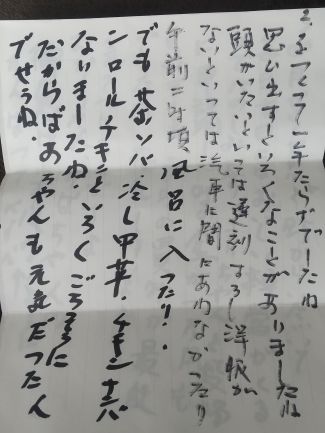 をつくって一年たらずでしたね
思い出すといろくなことがありましたね
頭がいたいといっては遅刻するし洋服が
ないといっては汽車に間にあわなかったり
午前二時頃風呂に入ったり・・
でも茶ソバ、冷し中華、チキンナンバ
ンロールチキンといろくごちそうに
なりましたね。
だからばあちゃんも元気だったん
でせうね。